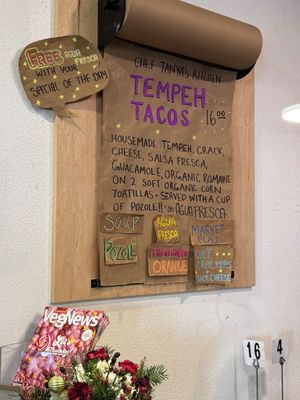 FREE AGUA
FRESCA
WITH YOUR
SPECIAL OF THE DAY
CHEF TANYA'S KITCHEN
TEMPEH
TACOS 16.00
HOUSEMADE TEMPEH, CRACK
CHEESE, SALSA FRESCA,
GUACAMOLE, ORGANIC ROMAINE
ON 2 SOFT ORGANIC CORN
TORTILLAS - SERVED WITH A CUP
OF POZOLE!! OR AGUA FRESCA
SOUP
POZOLE
AGUA
FRESCA
ORANGE
MARKET
PLATE
CRACKERS
VegNews
16
4